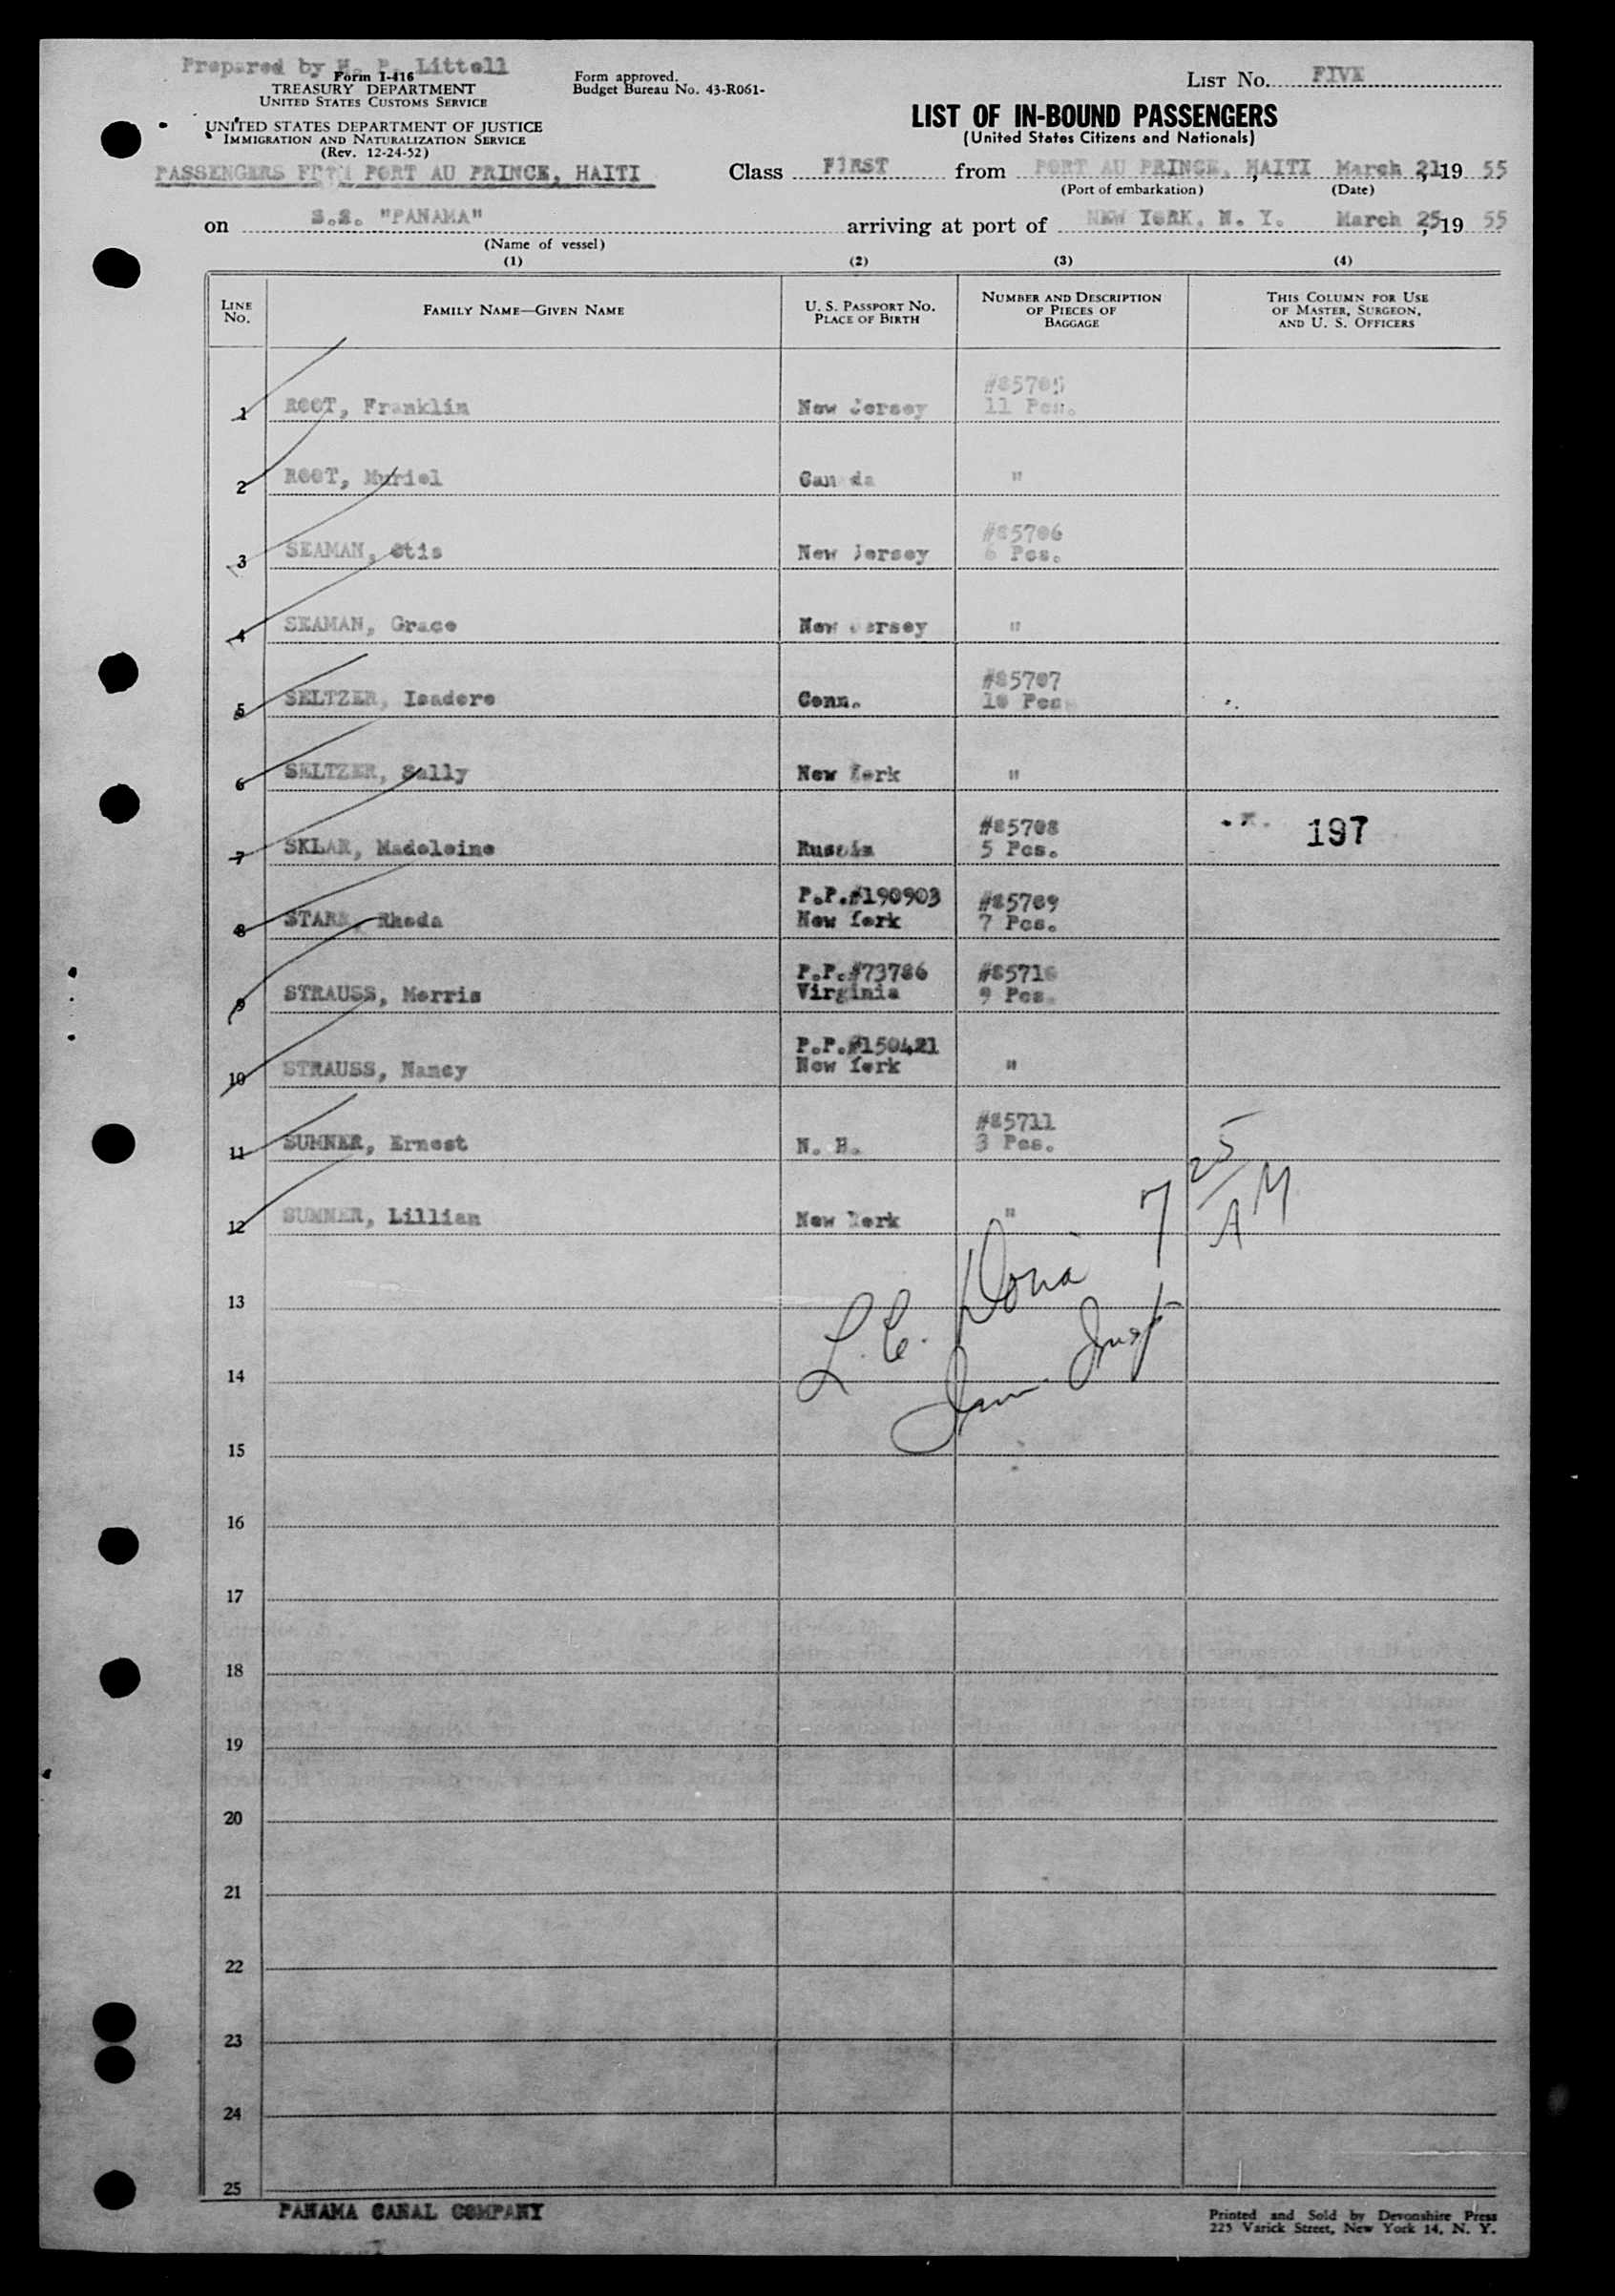 Prepared by H. P. Littell
Form I-416
TREASURY DEPARTMENT
UNITED STATES CUSTOMS SERVICE
UNITED STATES DEPARTMENT OF JUSTICE
IMMIGRATION AND NATURALIZATION SERVICE
(Rev. 12-24-52)
Form approved.
Budget Bureau No. 43-R061-
LIST NO. FIVE
LIST OF IN-BOUND PASSENGERS
(United States Citizens and Nationals)
PASSENGERS FROM PORT AU PRINCE, HAITI Class FIRST from PORT AU PRINCE, HAITI March 21, 19 55
(Port of embarkation) (Date)
on S.S. "PANAMA" arriving at port of NEW YORK, N. Y. March 25, 19 55
(Name of vessel)
(1) (2) (3) (4)
LINE NO. FAMILY NAME—GIVEN NAME U. S. PASSPORT NO. PLACE OF BIRTH NUMBER AND DESCRIPTION OF PIECES OF BAGGAGE THIS COLUMN FOR USE OF MASTER, SURGEON, AND U. S. OFFICERS
#85705
1 ROOT, Franklin New Jersey 11 Pcs.
2 ROOT, Muriel Canada "
#85706
3 SEAMAN, Otis New Jersey 6 Pcs.
4 SEAMAN, Grace New Jersey "
#85707
5 SELTZER, Isadore Conn. 10 Pcs.
6 SELTZER, Sally New York "
#85708 197
7 SKLAR, Madeleine Russia 5 Pcs.
P.P.#190903 #85709
8 Rhoda New York 7 Pcs.
P.P.#73786 #85710
9 STRAUSS, Morris Virginia 9 Pcs.
P.P.#150421
10 STRAUSS, Nancy New York "
#85711
11 SUMNER, Ernest N. H. 3 Pcs.
12 SUMNER, Lillian New York "
7 25 AM
L. E.
Imm. Inspt
13
14
15
16
17
18
19
20
21
22
23
24
25
PANAMA CANAL COMPANY
Printed and Sold by Devonshire Press
225 Varick Street, New York 14, N. Y.